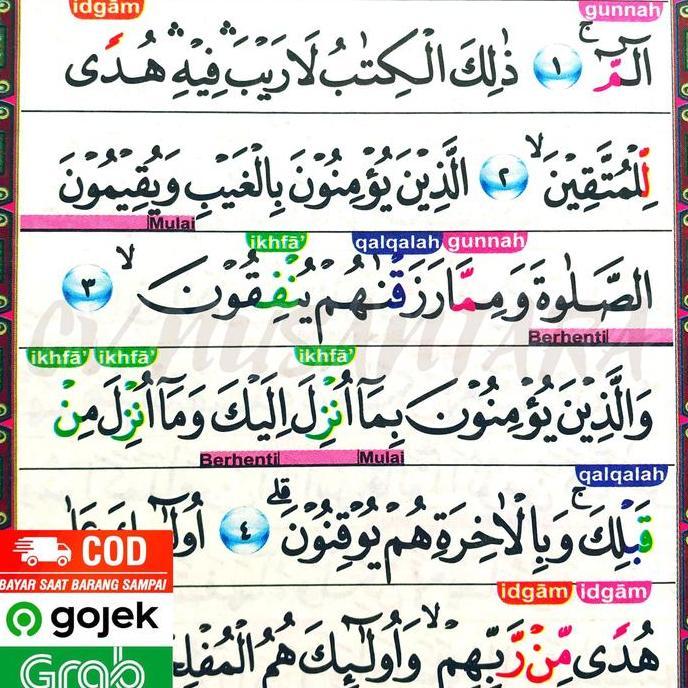 idgām gunnah
الٓمّٓ ۚ ١ ذٰلِكَ الْكِتٰبُ لَا رَيْبَ ۛ فِيْهِ ۛ هُدًى
لِّلْمُتَّقِيْنَ ۙ ٢ الَّذِيْنَ يُؤْمِنُوْنَ بِالْغَيْبِ وَيُقِيْمُوْنَ
Mulai
ikhfā’ qalqalah gunnah
الصَّلٰوةَ وَمِمَّا رَزَقْنٰهُمْ يُنْفِقُوْنَ ۙ ٣
Berhenti
ikhfā’ ikhfā’ ikhfā’
وَالَّذِيْنَ يُؤْمِنُوْنَ بِمَآ اُنْزِلَ اِلَيْكَ وَمَآ اُنْزِلَ مِنْ
Berhenti Mulai
qalqalah
قَبْلِكَ ۚ وَبِالْاٰخِرَةِ هُمْ يُوْقِنُوْنَ ۗ ٤
idgām idgām
هُدًى مِّنْ رَّبِّهِمْ ۙ وَاُولٰۤىِٕكَ هُمُ
COD
BAYAR SAAT BARANG SAMPAI
gojek
Grab